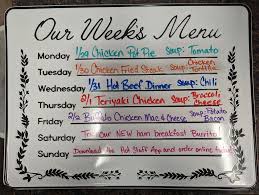 Our Week's Menu
Monday 1/29 Chicken Pot Pie Soup: Tomato
Tuesday 1/30 Chicken Fried Steak Soup: Chicken Tortilla
Wednesday 1/31 Hot Beef Dinner Soup: Chili
Thursday 2/1 Teriyaki Chicken Soup: Broccoli Cheese
Friday 2/2 Buffalo Chicken Mac & Cheese Soup: Potato Bacon
Saturday Try our NEW ham breakfast Burrito
Sunday Download the Hot Stuff App and order online today!